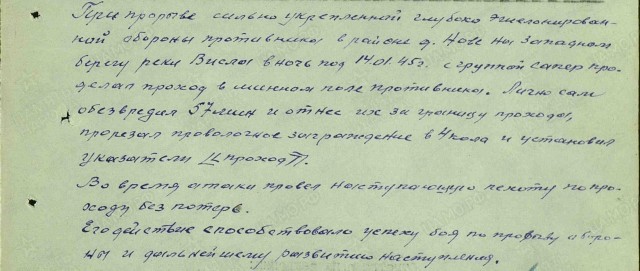 При прорыве сильно укрепленной глубоко эшелонирован-
ной обороны противника в районе д. Нове на западном
берегу реки Висла в ночь под 14.01.45г. с группой сапер про-
делал проход в минном поле противника. Лично сам
обезвредил 57 мин и отнес их за границу прохода,
прорезал проволочное заграждение в 4 кола и установил
указатели проход
Во время атаки провел наступающую пехоту по про-
ходу без потерь.
Его действие способствовало успеху боя по прорыву оборо-
ны и дальнейшему развитию наступления.